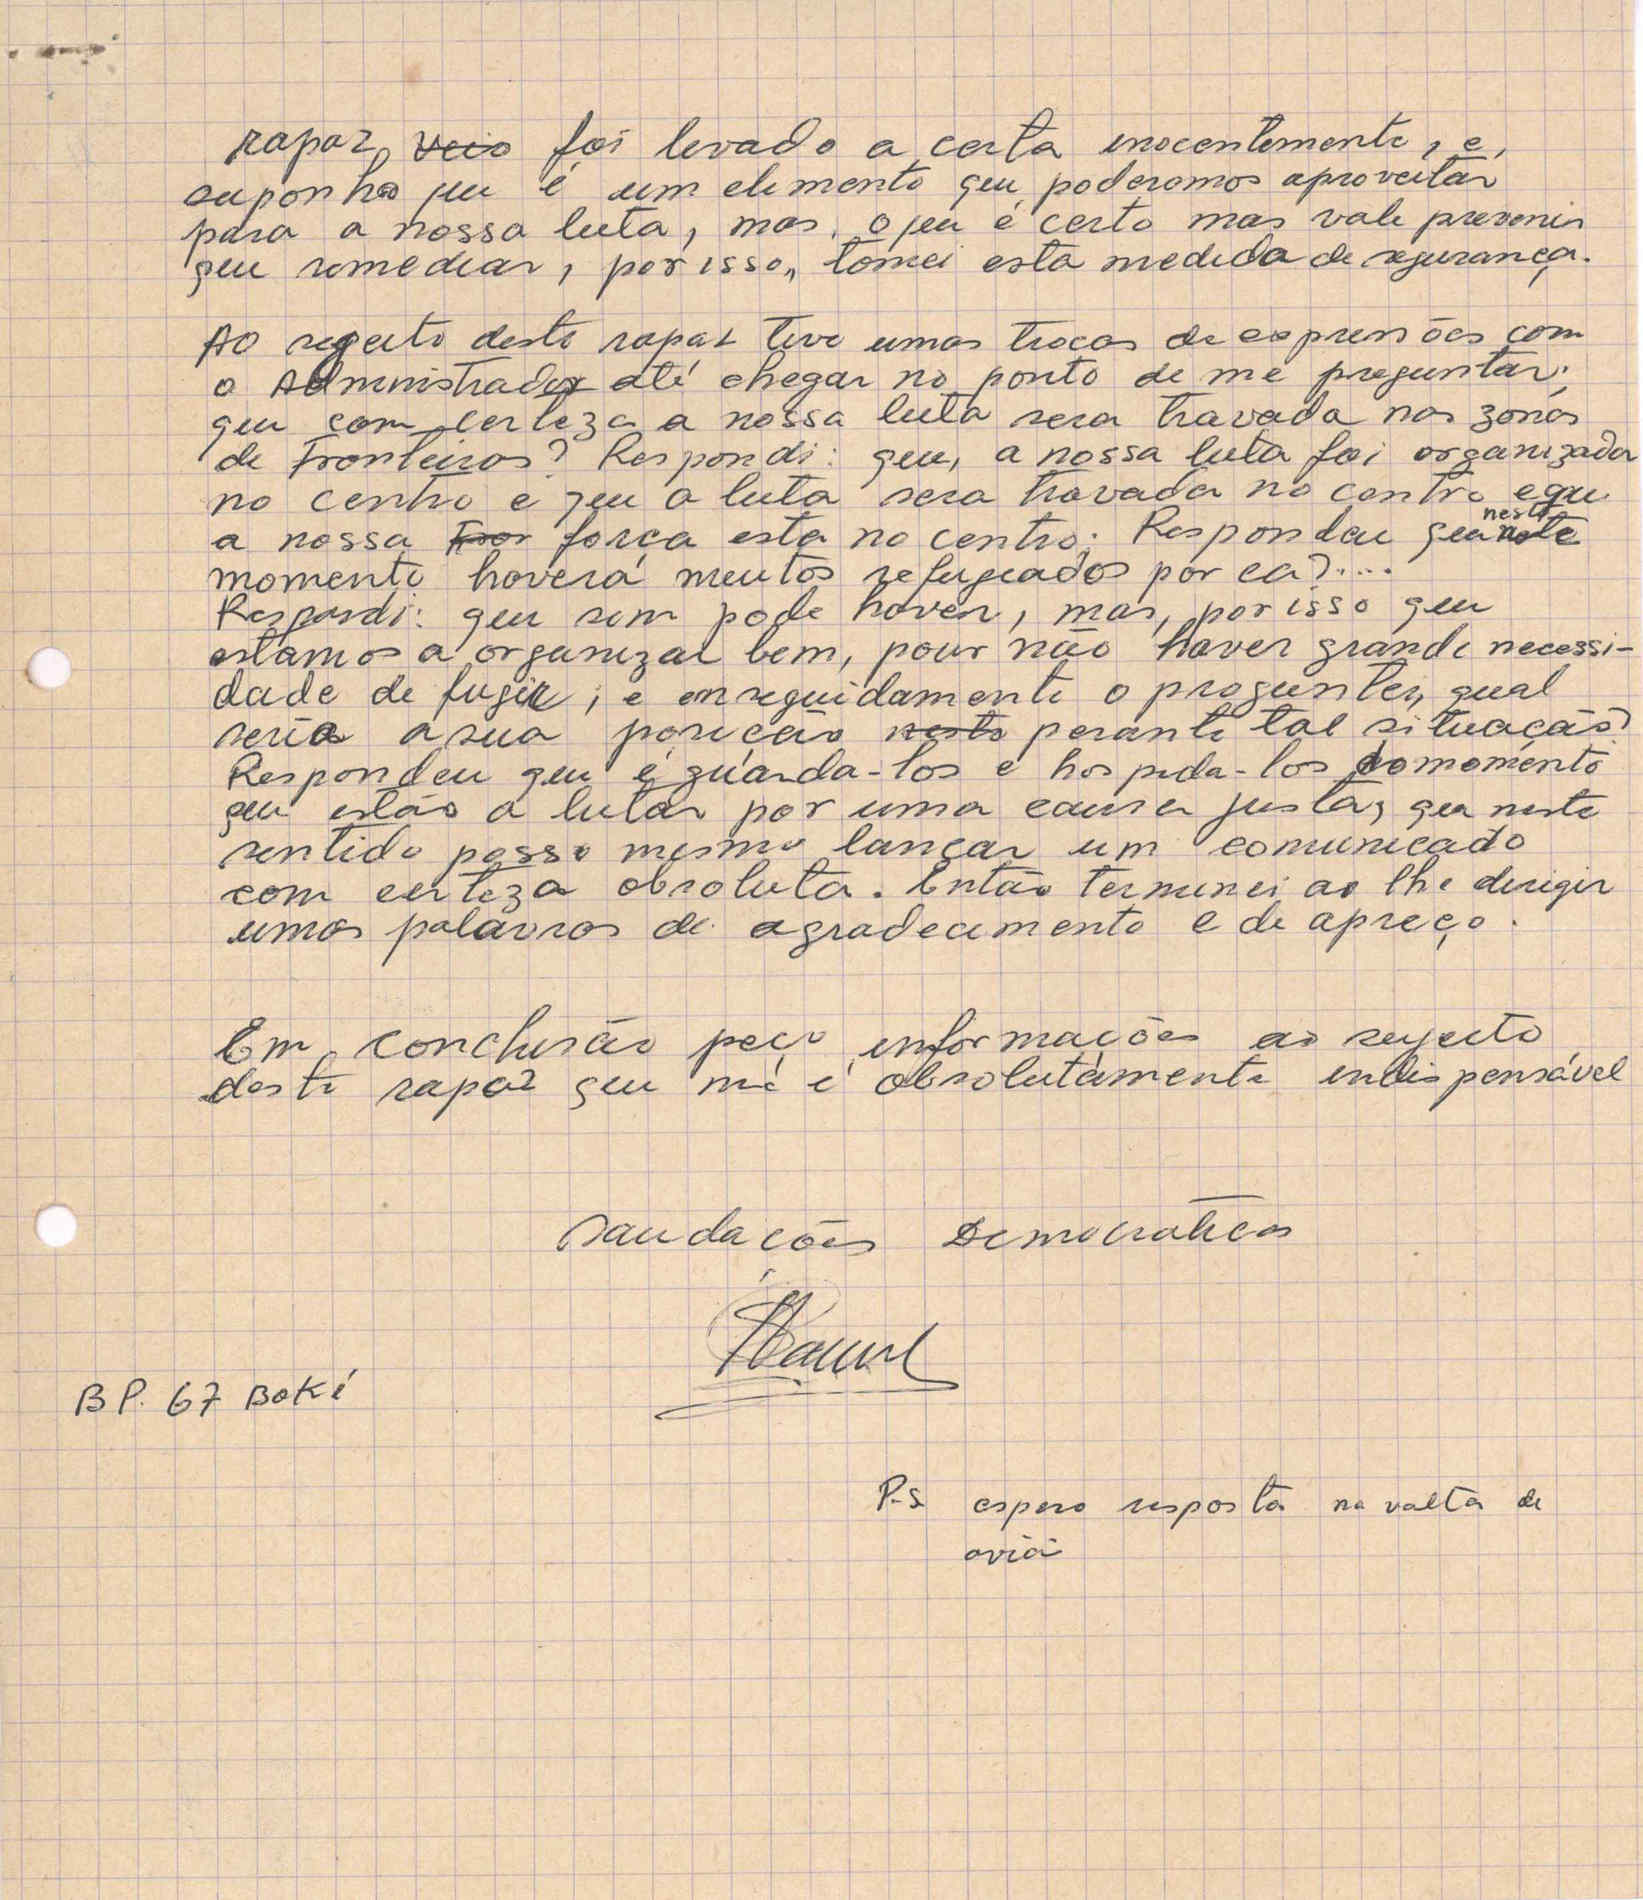 rapaz, veio foi levado a certa inocentemente, e,
suponho que é um elemento que poderemos aproveitar
para a nossa luta, mas, o que é certo mas vale prevenir
que remediar, por isso, tomei esta medida de segurança.
Ao sujeito deste rapaz tive umas trocas de expressões com
o Administrador até chegar no ponto de me preguntar;
que com certeza a nossa luta sera travada nas zonas
de Fronteiras? Respondi: que, a nossa luta foi organizada
no centro e que a luta sera travada no centro e que
a nossa força esta no centro; Respondeu que neste
momento haverá muitos refugeados por ca?....
Respondi: que sim pode haver, mas, por isso que
estamos a organizar bem, pour não haver grande necessi-
dade de fugir, e enseguidamente o preguntei, qual
seria a sua posição nesto perante tal situação?
Respondeu que é guarda-los e hospeda-los domomento
que estão a lutar por uma causa justa, que neste
sentido posso mesmo lançar um comunicado
com certeza absoluta. Então terminei ao lhe dirigir
umas palavras de agradecimento e de apreço.
Em conclusão peço informações ao sujeito
deste rapaz que me é absolutamente indispensável
Saudações Democraticas
BP. 67 Boké
P.S espero resposta na volta de
aviã